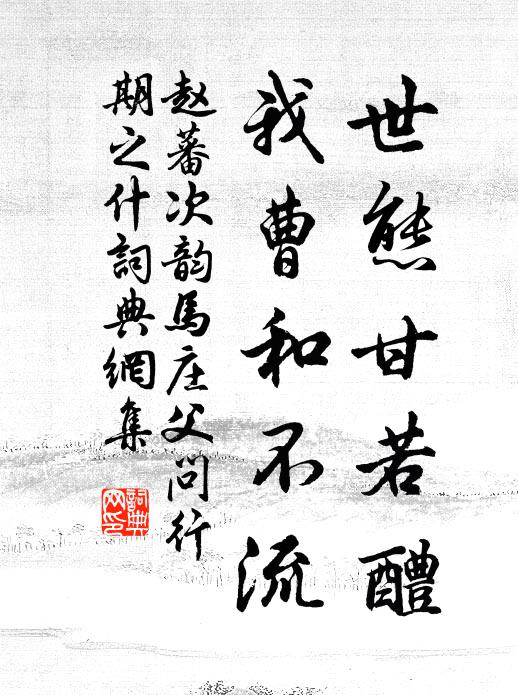 世態甘若醴
我曹和不流
赵蕃次韵馬庄父問行
期之什詞典網集
詞典网印